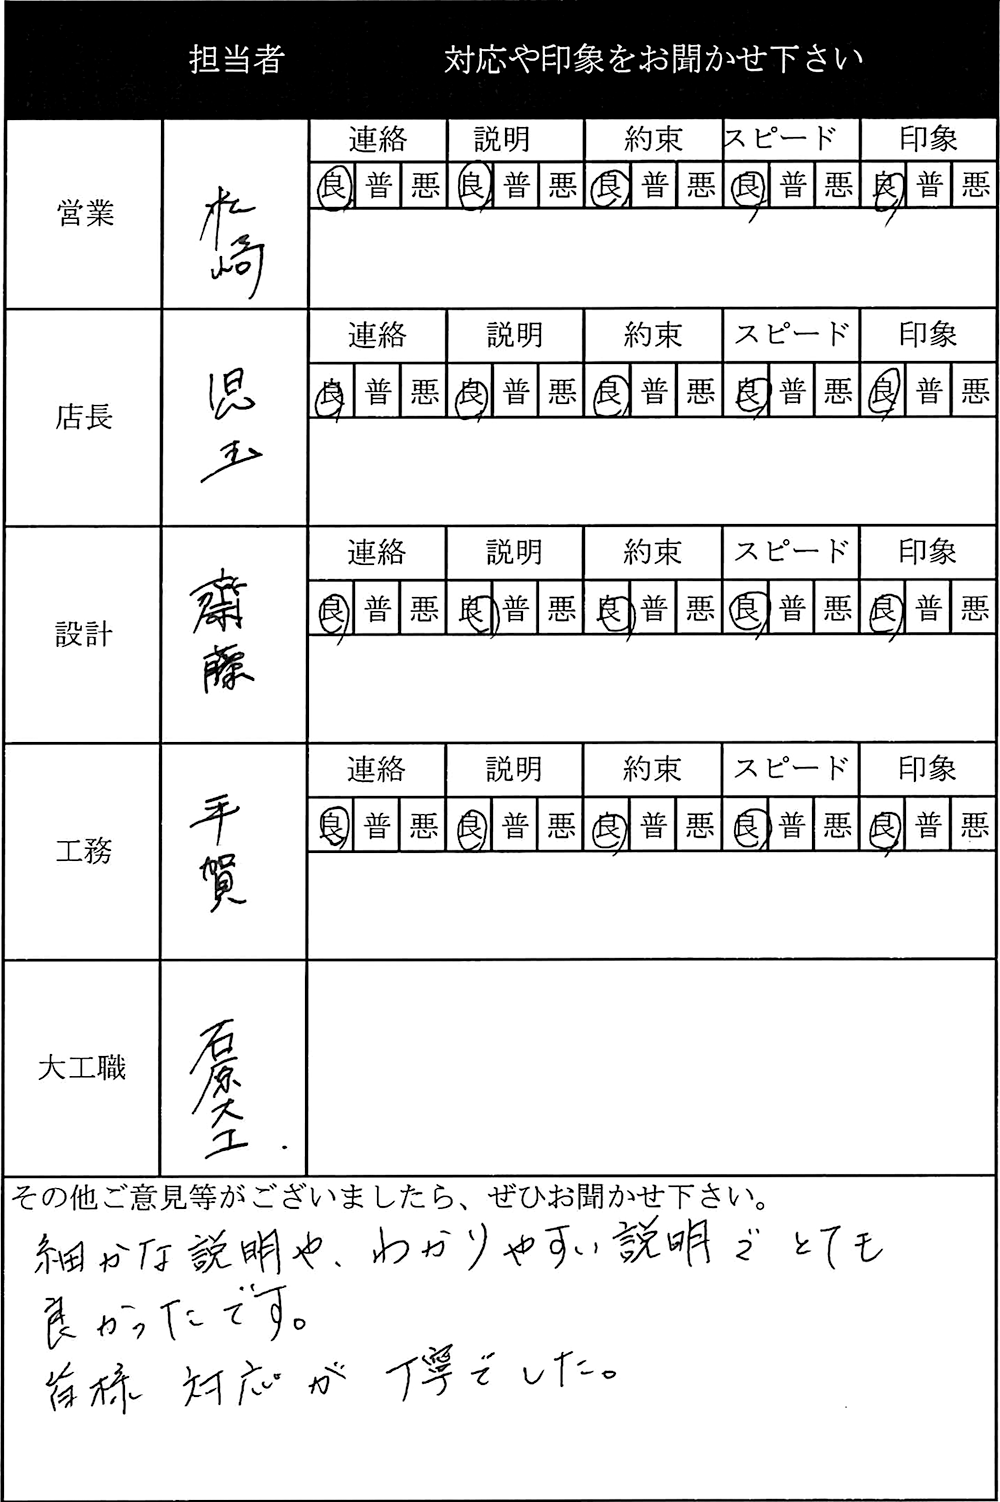 担当者 対応や印象をお聞かせ下さい
営業 松崎 連絡 説明 約束 スピード 印象
良 普 悪 良 普 悪 良 普 悪 良 普 悪 良 普 悪
店長 児玉 連絡 説明 約束 スピード 印象
良 普 悪 良 普 悪 良 普 悪 良 普 悪 良 普 悪
設計 齋藤 連絡 説明 約束 スピード 印象
良 普 悪 良 普 悪 良 普 悪 良 普 悪 良 普 悪
工務 平賀 連絡 説明 約束 スピード 印象
良 普 悪 良 普 悪 良 普 悪 良 普 悪 良 普 悪
大工職 石原大工
その他ご意見等がございましたら、ぜひお聞かせ下さい。
細かな説明や、わかりやすい説明でとても
良かったです。
皆様 対応が 丁寧でした。